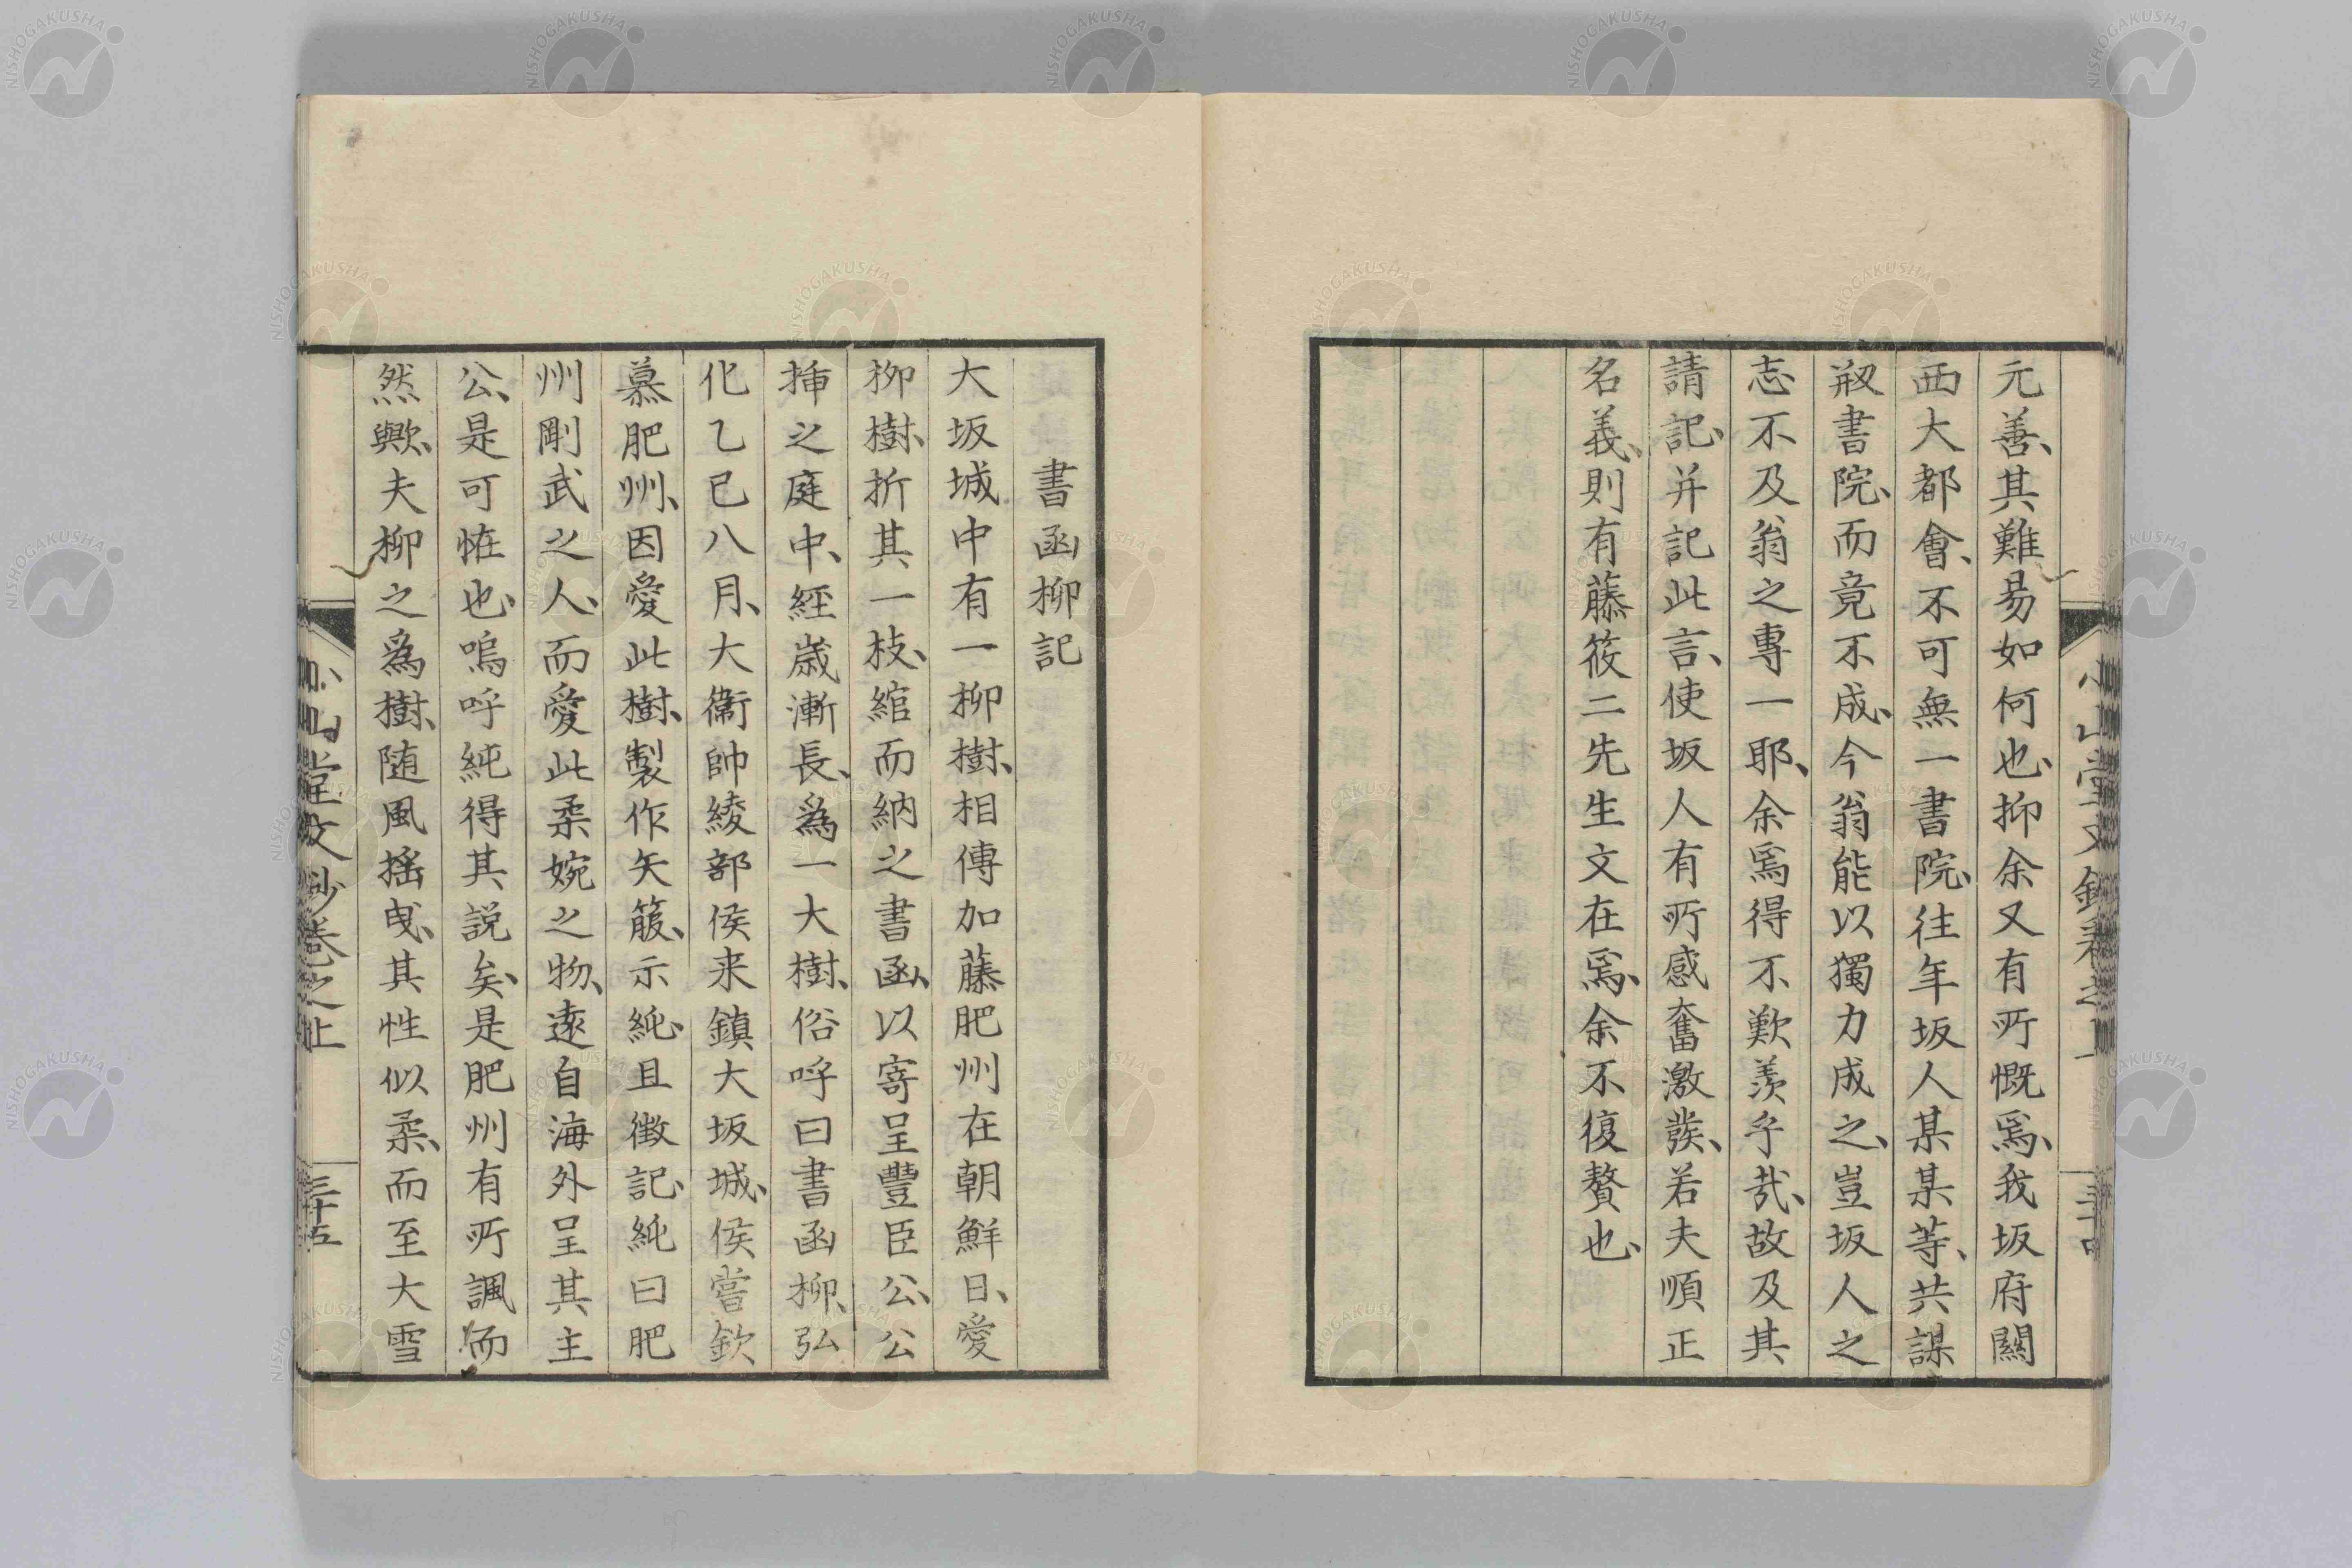 元善、其難易如何也、抑余又有所慨焉、我坂府關
西大都會、不可無一書院、往年坂人某某等、共謀
剏書院、而竟不成、今翁能以獨力成之、豈坂人之
志不及翁之專一耶、余焉得不歎羨乎哉、故及其
請記、并記此言、使坂人有所感奮激發、若夫順正
名義、則有藤筱二先生文在焉、余不復贅也、
書函柳記
大坂城中有一柳樹、相傳加藤肥州在朝鮮日、愛
柳樹、折其一枝、綰而納之書函、以寄呈豐臣公、公
挿之庭中、經歳漸長、爲一大樹、俗呼曰書函柳、弘
化乙巳八月、大衞帥綾部侯来鎮大坂城、侯嘗欽
慕肥州、因愛此樹、製作矢箙、示純、且徴記、純曰肥
州剛武之人、而愛此柔婉之物、遠自海外呈其主
公、是可恠也、嗚呼純得其説矣、是肥州有所諷而
然歟、夫柳之爲樹、随風揺曳、其性似柔、而至大雪
小山堂文鈔卷之上
三十五